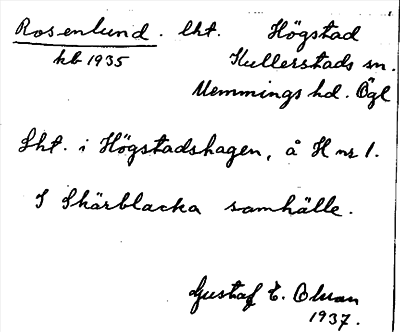 Rosenlund. lht. Högstad
kb 1935 Kullerstads sn.
Memmings hd. Ögl
Lht. i Högstadshagen, å H nr 1.
I Skärblacka samhälle.
Gustaf E. Olsson
1937.